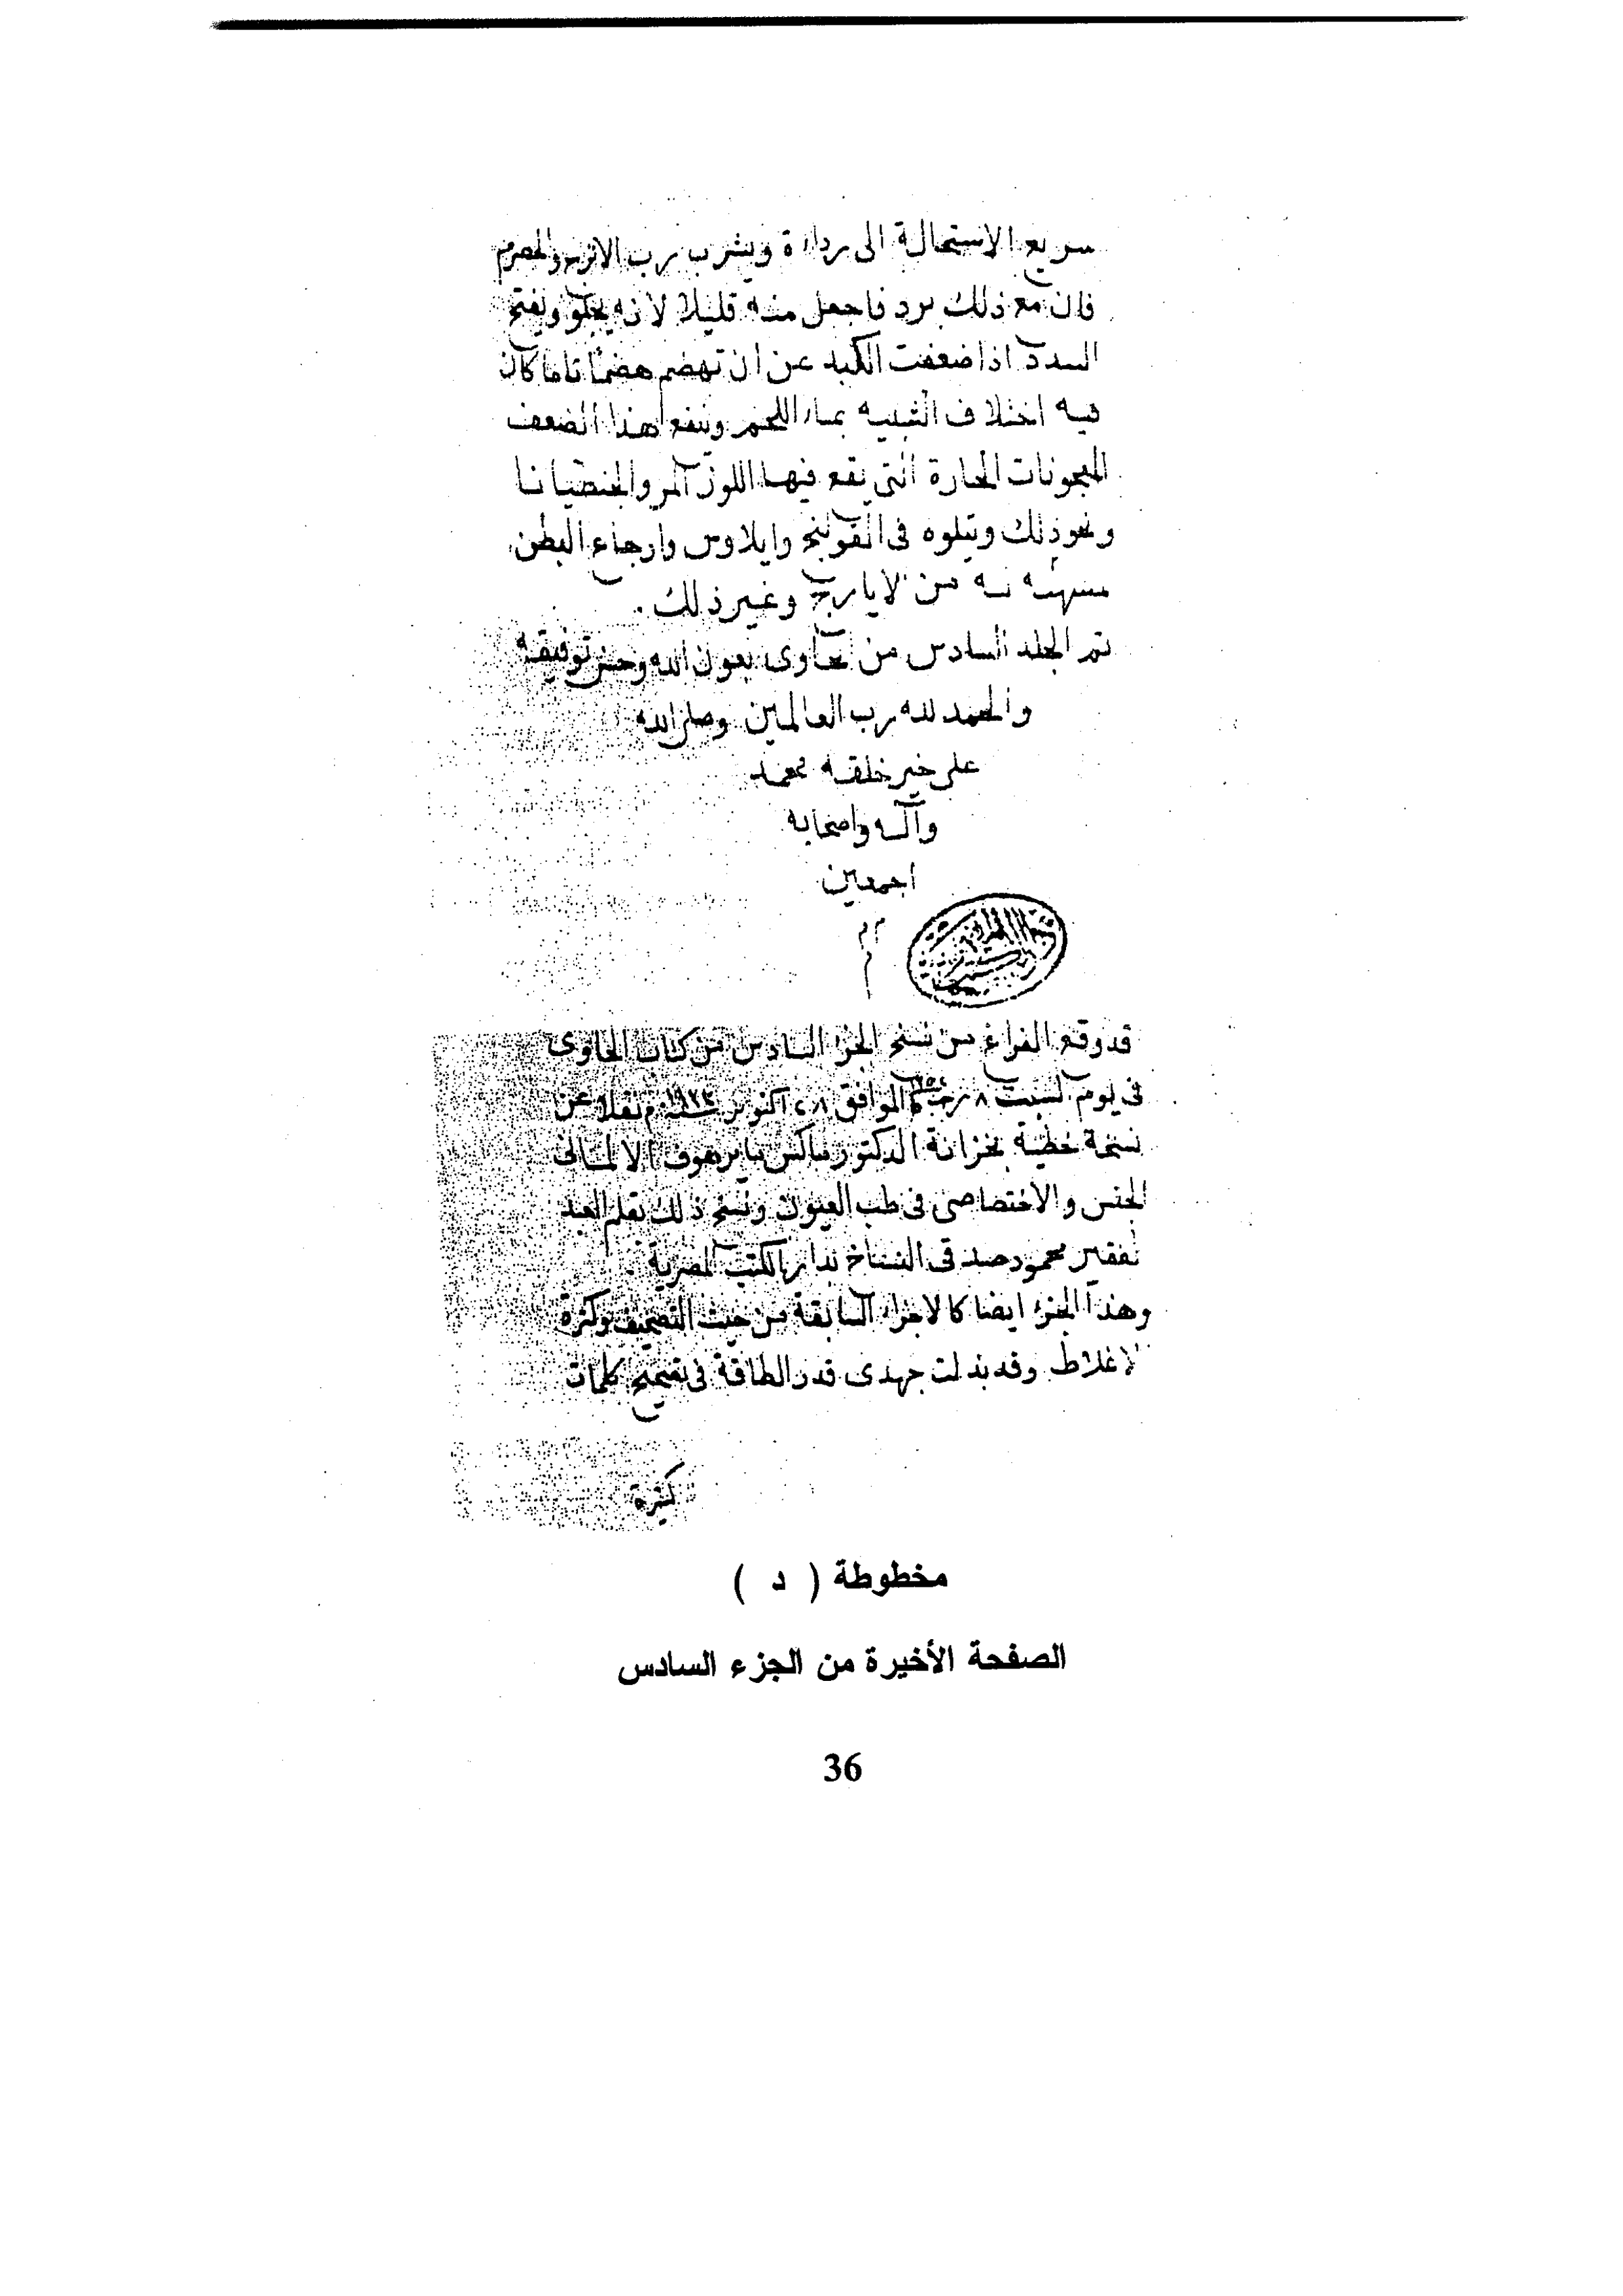 سريع الاستحالة الى رداءة ويشرب رب الاترج والحصرم
فان مع ذلك برد فاجعل منه قليلا لانه يجلو ويفتح
السدد اذا ضعفت الكبد عن ان تهضم هضما تاما كان
فيه اختلاف الشبيه بماء اللحم وينفع لهذا الضعف
المعجونات الحارة التى يقع فيها اللوز المر والجنطيانا
ونحو ذلك ويتلوه فى القولنج وايلاوس وارجاع البطن
مسهلة من لايارج وغير ذلك.
تم الجلد السادس من الحاوى بعون الله وحسن توفيقه
والحمد لله رب العالمين وصلى الله
على خير خلقه محمد
وآله واصحابه
اجمعين
م م
م
قد وقع الفراغ من نسخ الجزء السادس من كتاب الحاوى
فى يوم السبت ٨ رجب الموافق ٢٨ اكتوبر سنة ١٩٣٣ م نقلا عن
نسخة خطية بخزانة الدكتور ماكس مايرهوف الالمانى
الجنس والاختصاصى فى طب العيون ونسخ ذلك بقلم العبد
لفقير محمود صدقى النساخ بدار الكتب المصرية.
وهذا الجزء ايضا كالاجزاء السابقة من حيث التصحيف وكثرة
الاغلاط وقد بذلت جهدى قدر الطاقة فى تصحيح كلمات
كثيرة
مخطوطة ( د )
الصفحة الأخيرة من الجزء السادس
36